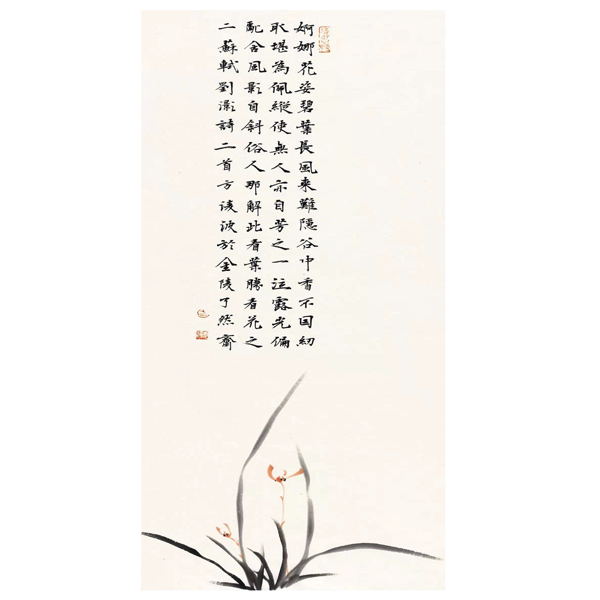 婀娜花姿碧葉長風來難隱谷中香不因紉
取堪為佩縱使無人亦自芳之一泣露光偏
亂含風影自斜俗人那解此看葉勝看花之
二蘇軾劉灝詩二首方於金陵了然齋